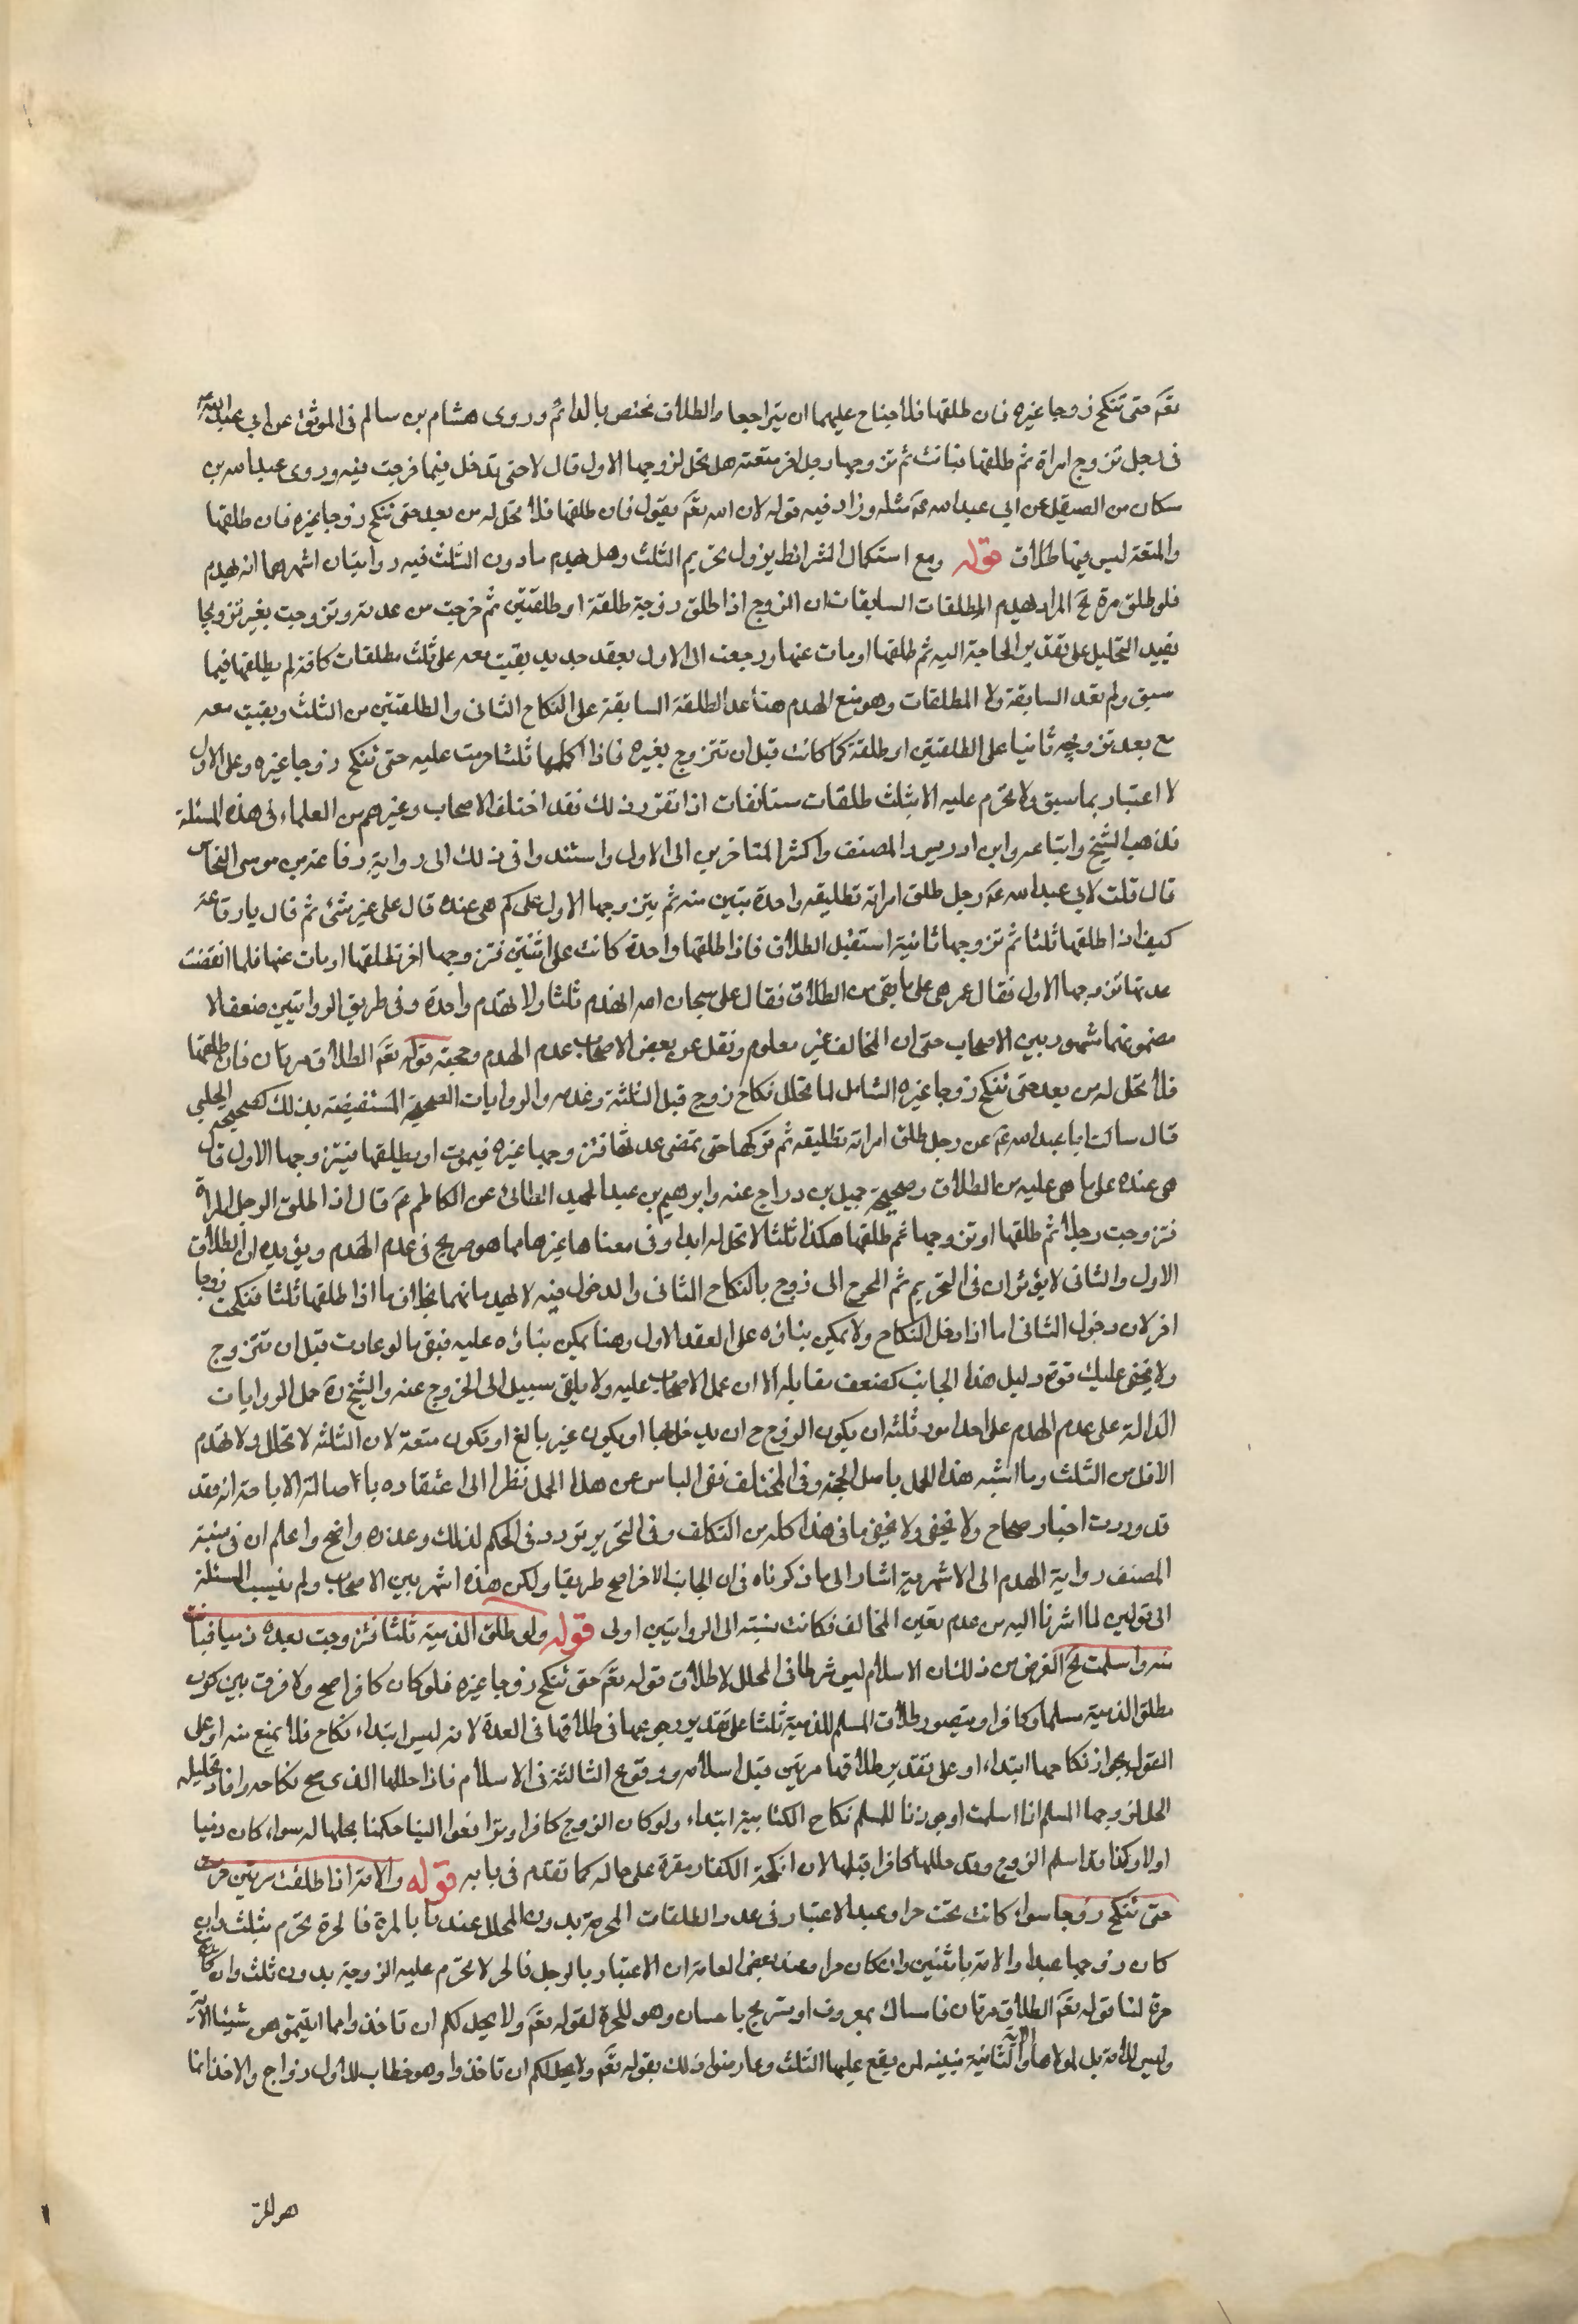 تعَم حتى تنكح زوجا غيره فان طلقها فلا جناح عليهما ان يتراجعا والطلاق مختص بالدائم وروى هشام بن سالم في الموثق عن ابي عبد الله عَ
في رجل تزوج امراة ثم طلقها فبانت ثم تزوجها رجل اخر متعة هل تحل لزوجها الاول قال لا حتى تدخل فيما خرجت منه وروى عبد الله بن
سكان من الصيقل عن ابي عبد الله عَم مثله وزاد فيه قوله لان الله تعَم يقول فان طلقها فلا تحل له من بعد حتى تنكح زوجا غيره فان طلقها
والمتعة ليس فيها طلاق قوله ومع استكمال الشرائط يزول تحريم الثلث وهل يهدم ما دون الثلث فيه روايتان اشهرهما انه يهدم
فلو طلق مرة لخ المراد بهدم المطلقات السابقات ان الزوج اذا طلق زوجة طلقة او طلقتين ثم خرجت من عدته وتزوجت بغيره تزويجا
يفيد التحليل على تقدير الحاجة اليه ثم طلقها او مات عنها ورجعت الى الاول بعقد جديد بقيت معه على ثلث مطلقات كانه لم يطلقها فيما
سبق ولم تعد السابقة ولا المطلقات وهو منع الهدم هنا عد الطلقة السابقة على النكاح الثاني والطلقتين من الثلث وبقيت معه
مع بعد تزوجه ثانيا على الطلقتين او طلقة كما كانت قبل ان تتزوج بغيره فاذا اكملها ثلثا حرمت عليه حتى تنكح زوجا غيره وعلى الاول
لا اعتبار بما سبق ولا تحرم عليه الا بثلث طلقات مستانفات اذا تقرر ذلك فقد اختلف الاصحاب وغيرهم من العلماء في هذه المسئلة
فذهب الشيخ واتباعه وابن ادريس والمصنف واكثر المتاخرين الى الاول واستندوا في ذلك الى رواية رفاعة بن موسى النخاس
قال قلت لابي عبد الله عَم رجل طلق امراته تطليقه واحدة فتبين منه ثم يتزوجها الاول على كم هي عنده قال على غير شئ ثم قال يا رفاعة
كيف اذا طلقها ثلثا ثم تزوجها ثانية استقبل الطلاق فاذا طلقها واحدة كانت على اثنتين فتزوجها اخر فطلقها او مات عنها فلما انقضت
عدتها تزوجها الاول فقال عمر هي على ما بقي من الطلاق فقال علي سبحان الله ايهدم ثلثا ولا يهدم واحدة وفي طريق الروايتين ضعف الا
مضمونهما مشهور بين الاصحاب حتى ان المخالف غير معلوم ونقل عن بعض الاصحاب عدم الهدم وحجته قوله تعَم الطلاق مرتان فان طلقها
فلا تحل له من بعد حتى تنكح زوجا غيره الشامل لما تخلل نكاح زوج قبل الثلثة وعدمه والروايات الصحيحة المستفيضة بذلك كصحيحة الحلبي
قال سالت ابا عبد الله عَم عن رجل طلق امراته تطليقه ثم تركها حتى تمضى عدتها فتزوجها غيره فيموت او يطلقها فيتزوجها الاول قال
هي عنده على ما هي عليه من الطلاق وصحيحة جميل بن دراج عنه وابرهيم بن عبد الحميد الطائي عن الكاظم عَم قال اذا طلق الرجل المراة
فتزوجت رجلا ثم طلقها او تزوجها ثم طلقها هكذا ثلثا لا تحل له ابدا وفي معناها غيرها مما هو صريح في عدم الهدم ويؤيده ان الطلاق
الاول والثاني لا يؤثران في التحريم ثم المحوج الى زوج بالنكاح الثاني والدخول فيه لا يهدمانهما بخلاف ما اذا طلقها ثلثا فنكحت زوجا
اخر لان دخول الثاني اما اذا دخل النكاح ولا يمكن بناؤه على العقد الاول وهنا يمكن بناؤه عليه فبقى ما لو عادت قبل ان تتزوج
ولا يخفى عليك قوة دليل هذا الجانب كضعف مقابله الا ان عمل الاصحاب عليه ولا يلقى سبيل الى الخروج عنه والشيخ رَه حمل الروايات
الدالة على عدم الهدم على احد امور ثلثه ان يكون الزوج ح ان يدخل بها او يكون غير بالغ او تكون متعة لان الثلثه لا تحلل ولا تهدم
الاقل من الثلث وما اشبه هذا الحمل باصل الحجة وفي المختلف نفى الباس عن هذا الحمل نظرا الى اعتقاده باصالة الاباحة انه فقد
قد وردت اخبار صحاح ولا تخفى ولا يخفى ما في هذا كله من التكلف وفي التحرير تردد في الحكم لذلك وعذره واضح واعلم ان في نسبة
المصنف رواية الهدم الى الاشهرية اشار الى ما ذكرناه في ان الجانب الاخر اصح طريقا ولكن هذه اشهر بين الاصحاب ولم ينسب المسئلة
الى قولين لما اشرنا اليه من عدم تعين المخالف فكانت نسبته الى الروايتين اولى قوله ولو طلق الذمية ثلثا فتزوجت بعده ذميا فبانت
منه واسلمت لخ الغرض من ذلك ان الاسلام ليس شرطا في المحلل لاطلاق قوله تعَم حتى تنكح زوجا غيره فلو كان كافرا صح ولا فرق بين كون
مطلق الذمية مسلما وكافرا ويتصور طلاق المسلم للذمية ثلثا على تقدير رجوعها في طلاقها في العدة لانه ليس ابتداء نكاح فلا يمنع منه او على
القول بجواز نكاحها ابتداء او على تقدير طلاقها مرتين قبل اسلامه ووقوع الثالثة في الاسلام فاذا حللها الذمى صح نكاحه وافاد تحليله
الحل لزوجها المسلم اذا اسلمت او جوزنا للمسلم نكاح الكتابية ابتداء ولو كان الزوج كافرا وترافعوا الينا حكمنا بحلها له سواء كان ذميا
او لا وكذا قد اسلم الزوج وقد حللها كافر قبلها لان انكحة الكفار مقرة على حاله كما تقدم في بابه قوله والامة اذا طلقت مرتين حرمت
حتى تنكح زوجا سواء كانت تحت حر او عبد الاعتبار في عدد الطلقات المحرمة بدون المحلل عندنا بالمرة فالحرة تحرم بثلث وان
كان زوجها عبدا والامة باثنتين وان كان حرا وعند بعض العامة ان الاعتبار بالرجل فالحر لا تحرم عليه الزوجة بدون ثلث وان كانت
حرة لنا قوله تعَم الطلاق مرتان فامساك بمعروف او تسريح باحسان وهو للحرة لقوله تعَم ولا يحل لكم ان تاخذوا مما اتيتموهن شيئا الآية
وليس للامة بل لمولاها والثانية مبينه لمن يقع عليها الثلث وعارضوا ذلك بقوله تعَم ولا يحل لكم ان تاخذوا وهو خطاب للازواج والاخذ انما
هو للحرة